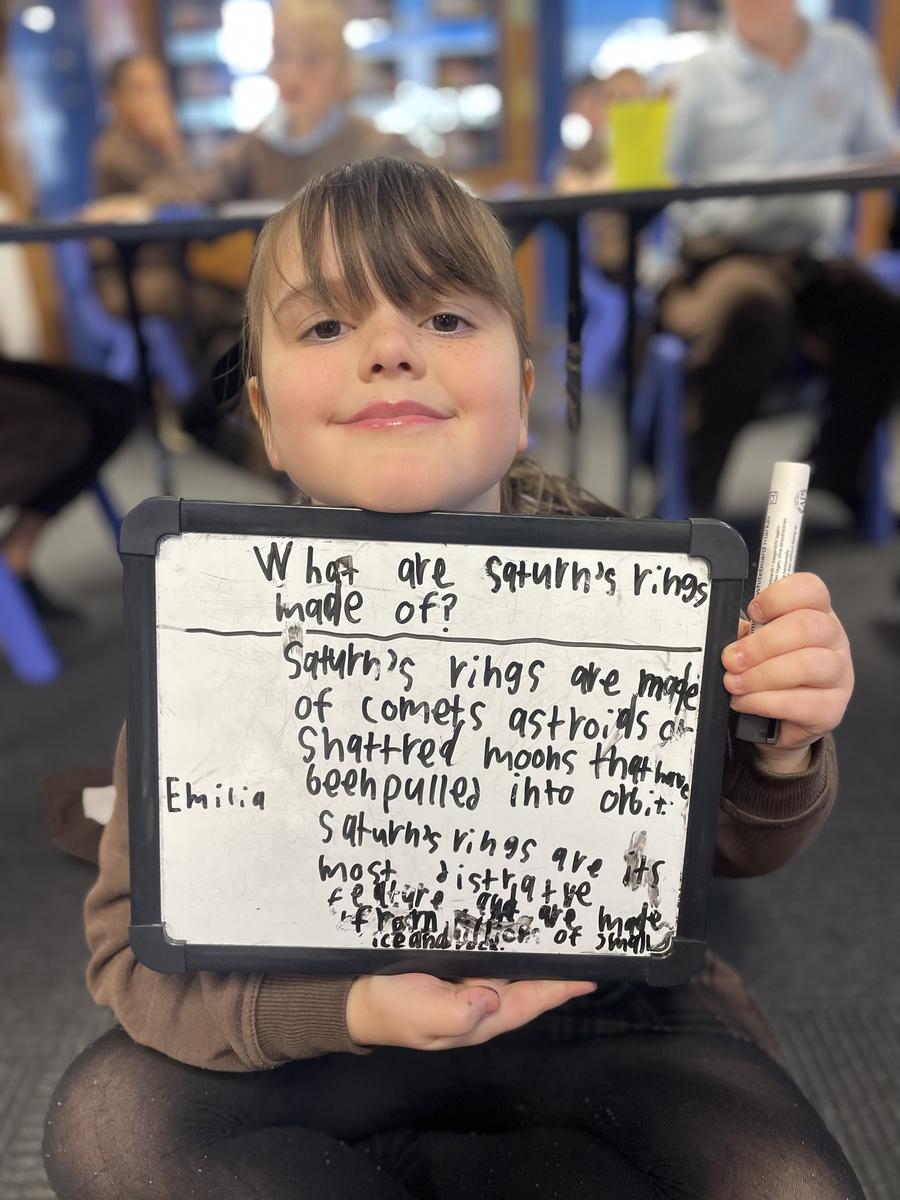 What are Saturn's rings
made of?
Saturn's rings are made
of comets astroids or
Shattred moons that have
been pulled into orbit.
Emilia
Saturn's rings are its
most distratve
feature and are made
from billions of small
ice and rock.
whiteboard marker